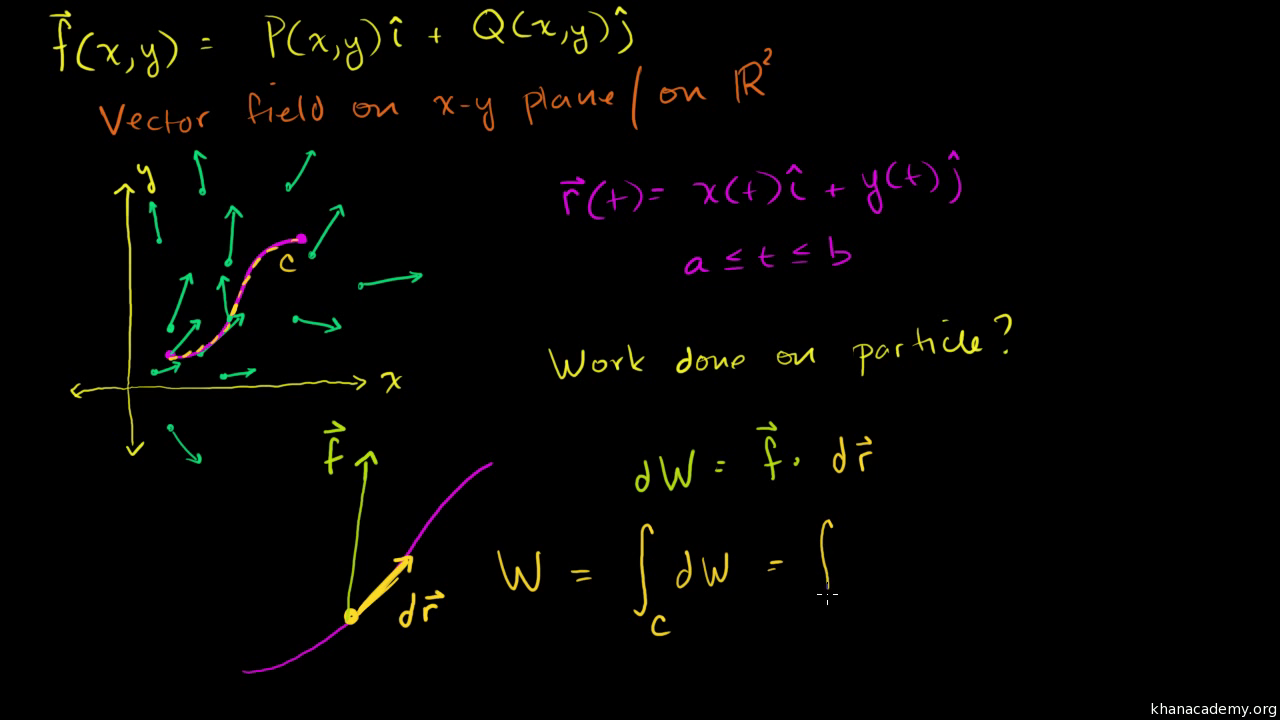 f⃗(x,y) = P(x,y)î + Q(x,y)ĵ
Vector field on x-y plane / on ℝ²
y
r⃗(t) = x(t)î + y(t)ĵ
c
a ≤ t ≤ b
Work done on particle?
x
f⃗
dW = f⃗ · dr⃗
W = ∫_c dW = ∫
dr⃗
khanacademy.org